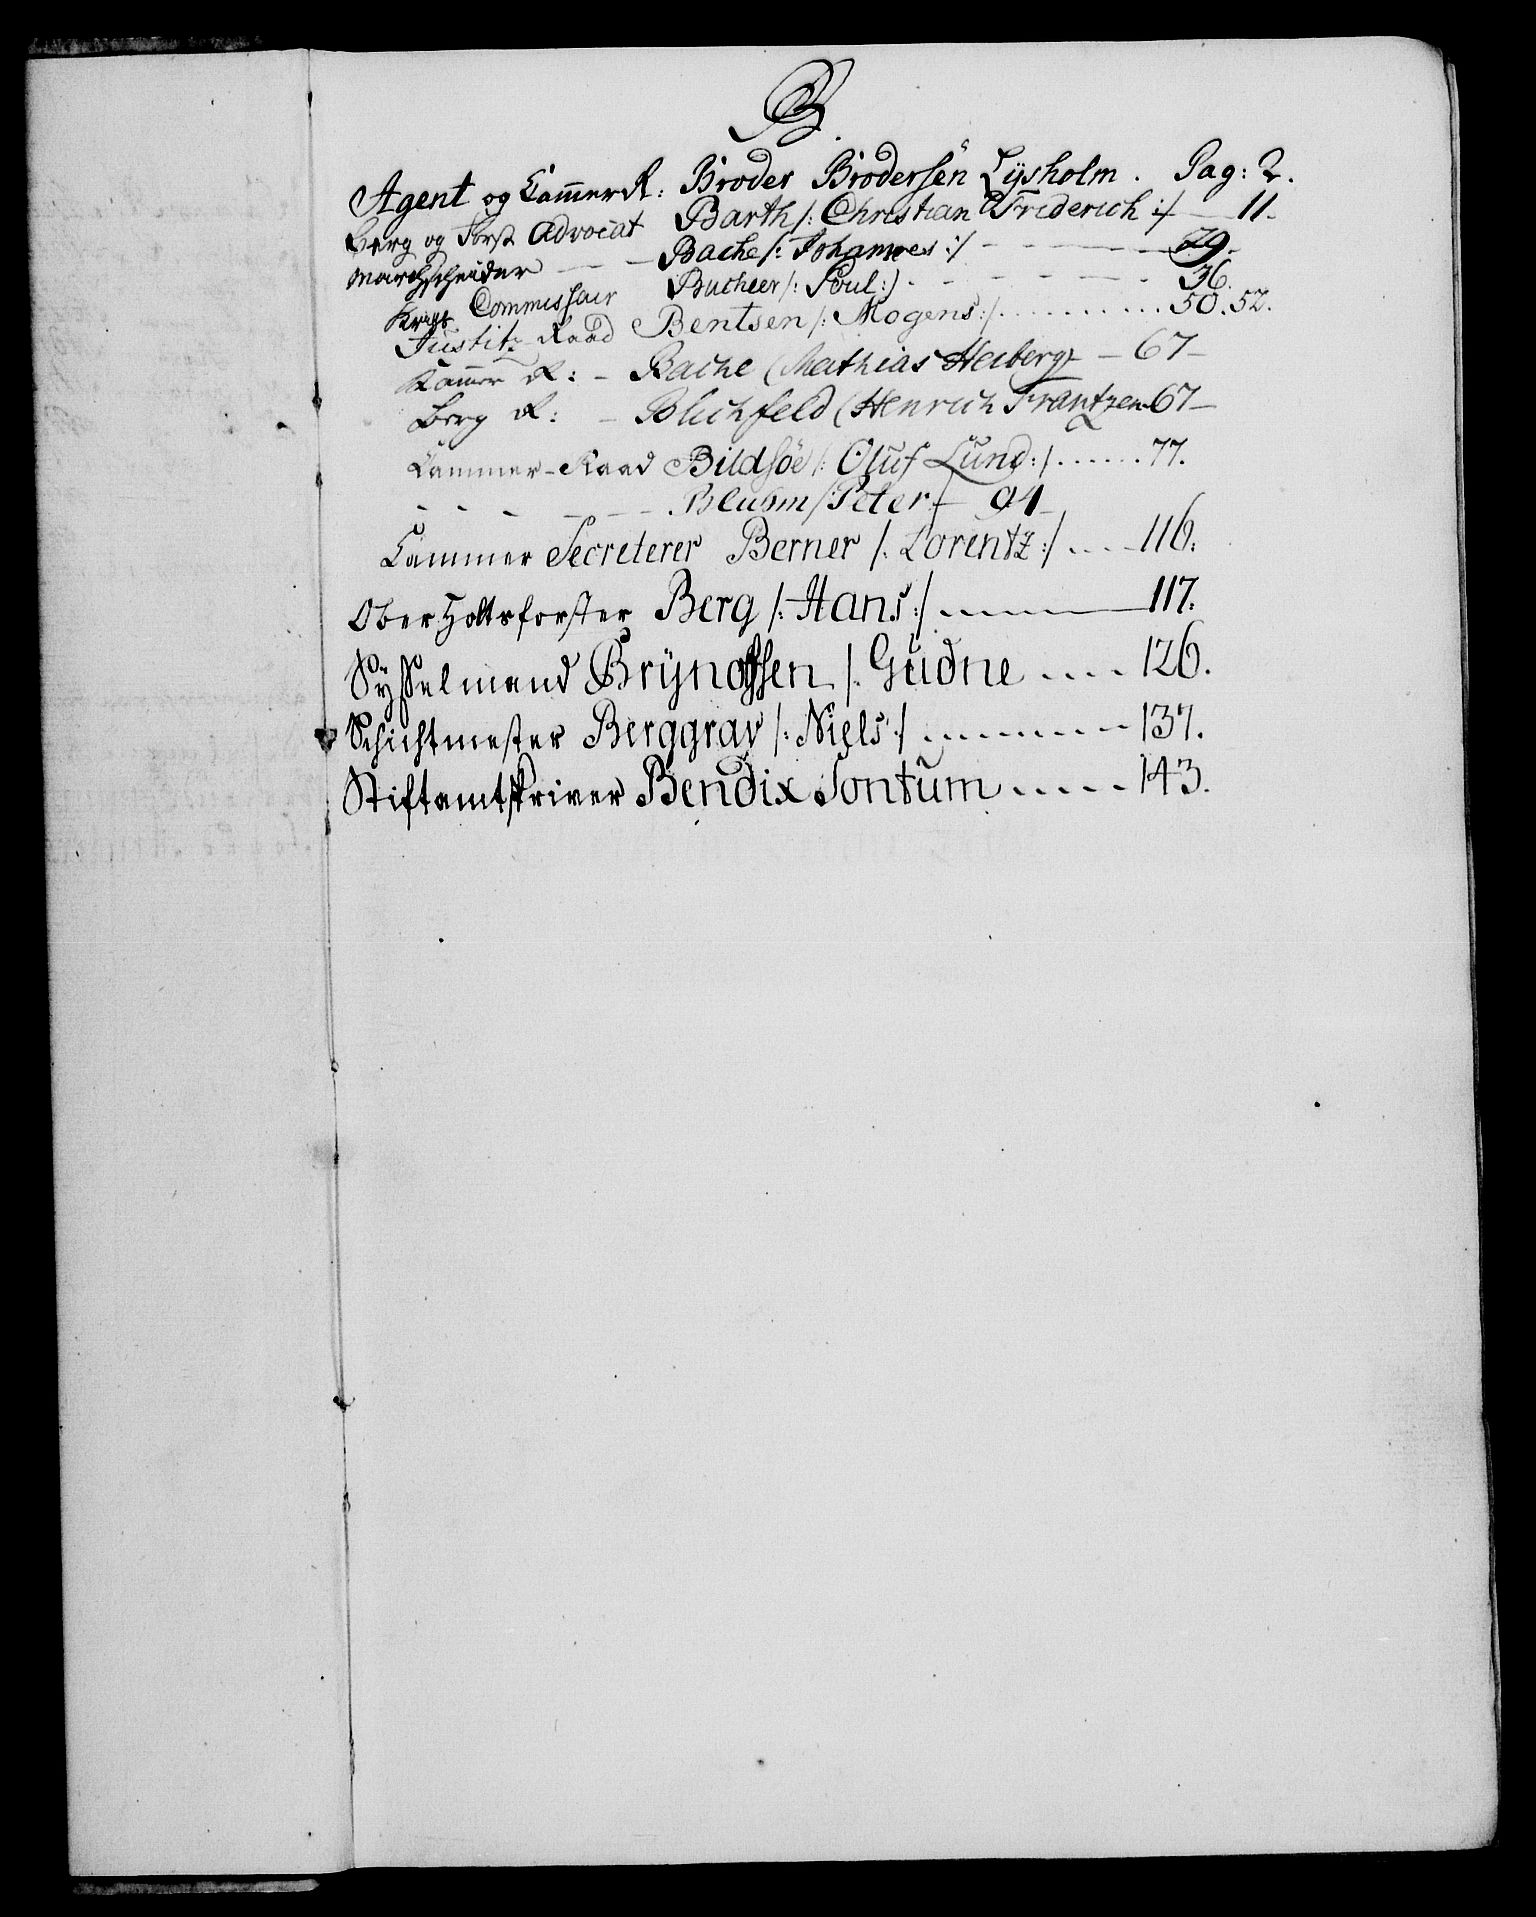 B.
Agent og Cammer R: Broder Brodersen Lysholm. Pag: 2.
Berg og Forst Advocat Barth /: Christian Friderich :/ — 11.
Marchscheider — — Bache /: Johannes :/ - - - — 29.
Krigs Commissair Bucheer /: Poul :/ . - - - - 36.
Justitz Raad Bentsen /: Mogens :/ . . . . . . . . . . 50. 52.
Kammer R: – Bache (Mathias Heiberg) – 67 –
Berg R: – Blichfeld (Henrich Frantzen 67 –
Cammer-Raad Bildsöe /: Oluf Lund :/ . . . . . . 77.
- - - - - - Bluhm /: Peter :/ – 94 –
Cammer Secreterer Berner /: Lorentz :/ . . . . 116.
Ober Holtzforster Berg /: Hans :/ . . . . . 117.
Sysselmand Brynolfsen /: Gudne . . . . 126.
Schichtmester Berggrav /: Niels :/ . . . . . . . . 137.
Stiftamtskriver Bendix Tontum . . . . . 143.